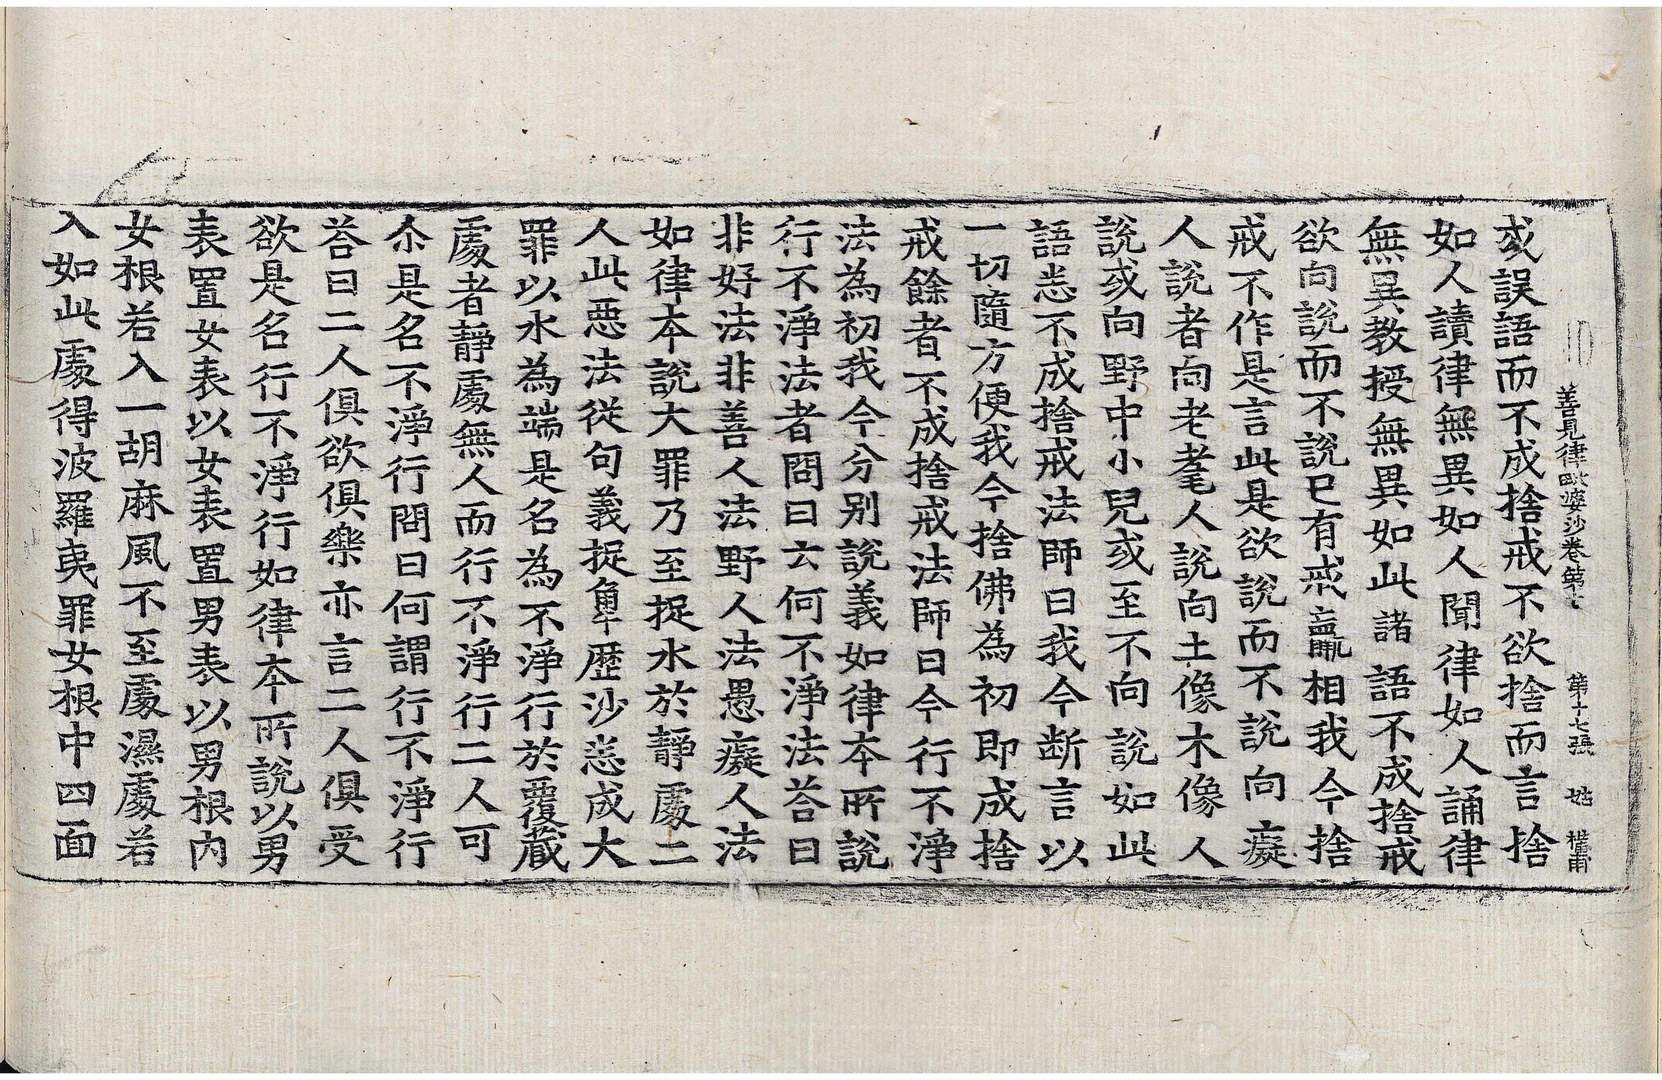 善見律毗婆沙卷第七 第十七張 姑
或誤語而不成捨戒不欲捨而言捨
如人讀律無異如人聞律如人誦律
無異教授無異如此諸語不成捨戒
欲向說而不說已有戒羸相我今捨
戒不作是言此是欲說而不說向癡
人說者向老耄人說向土像木像人
說或向野中小兒或至不向說如此
語悉不成捨戒法師曰我今断言以
一切隨方便我今捨佛為初即成捨
戒餘者不成捨戒法師曰今行不淨
法為初我今分別說義如律本所說
行不淨法者問曰云何不淨法荅曰
非好法非善人法野人法愚癡人法
如律本說大罪乃至捉水於靜處二
人此惡法従句義捉𢌞歴沙悉成大
罪以水為端是名為不淨行於覆藏
處者靜處無人而行不淨行二人可
尒是名不淨行問曰何謂行不淨行
荅曰二人俱欲俱樂亦言二人俱受
欲是名行不淨行如律本所說以男
表置女表以女表置男表以男根內
女根若入一胡麻風不至處濕處若
入如此處得波羅夷罪女根中四面